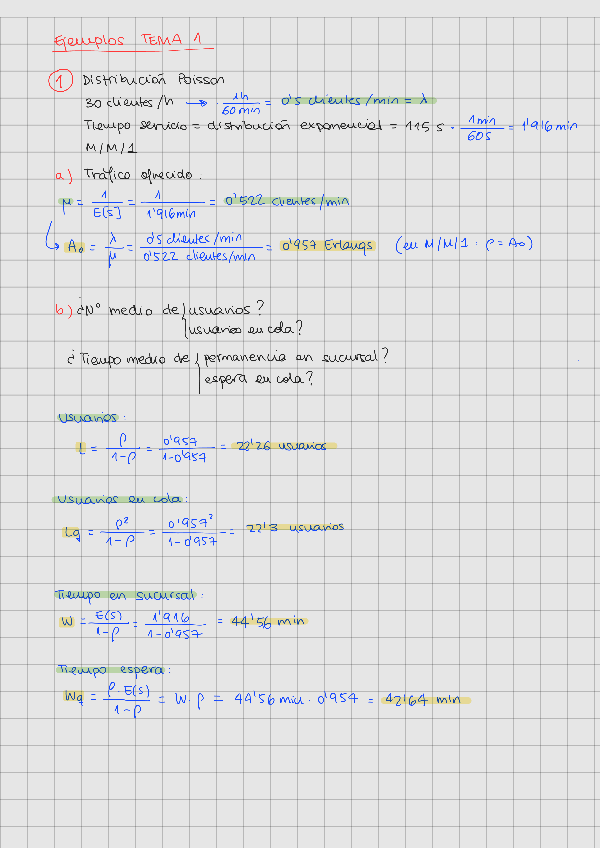 Ejemplos TEMA 1
1 Distribución Poisson
30 clientes/h → · 1h/60min = 0'5 clientes/min = λ
Tiempo servicio = distribución exponencial = 115 s · 1min/60s = 1'916 min
M/M/1
a) Tráfico ofrecido.
μ = 1/E[s] = 1/1'916min = 0'522 clientes/min
A₀ = λ/μ = 0'5 clientes/min / 0'522 clientes/min = 0'957 Erlangs (en M/M/1 : ρ = A₀)
b) ¿Nº medio de { usuarios?
usuarios en cola?
¿Tiempo medio de { permanencia en sucursal?
espera en cola?
Usuarios:
L = ρ/1-ρ = 0'957/1-0'957 = 22'26 usuarios
Usuarios en cola:
Lq = ρ²/1-ρ = 0'957²/1-0'957 = 22'3 usuarios
Tiempo en sucursal:
W = E(s)/1-ρ = 1'916/1-0'957 = 44'56 min
Tiempo espera:
Wq = ρ·E(s)/1-ρ = W·ρ = 44'56 min · 0'957 = 42'64 min